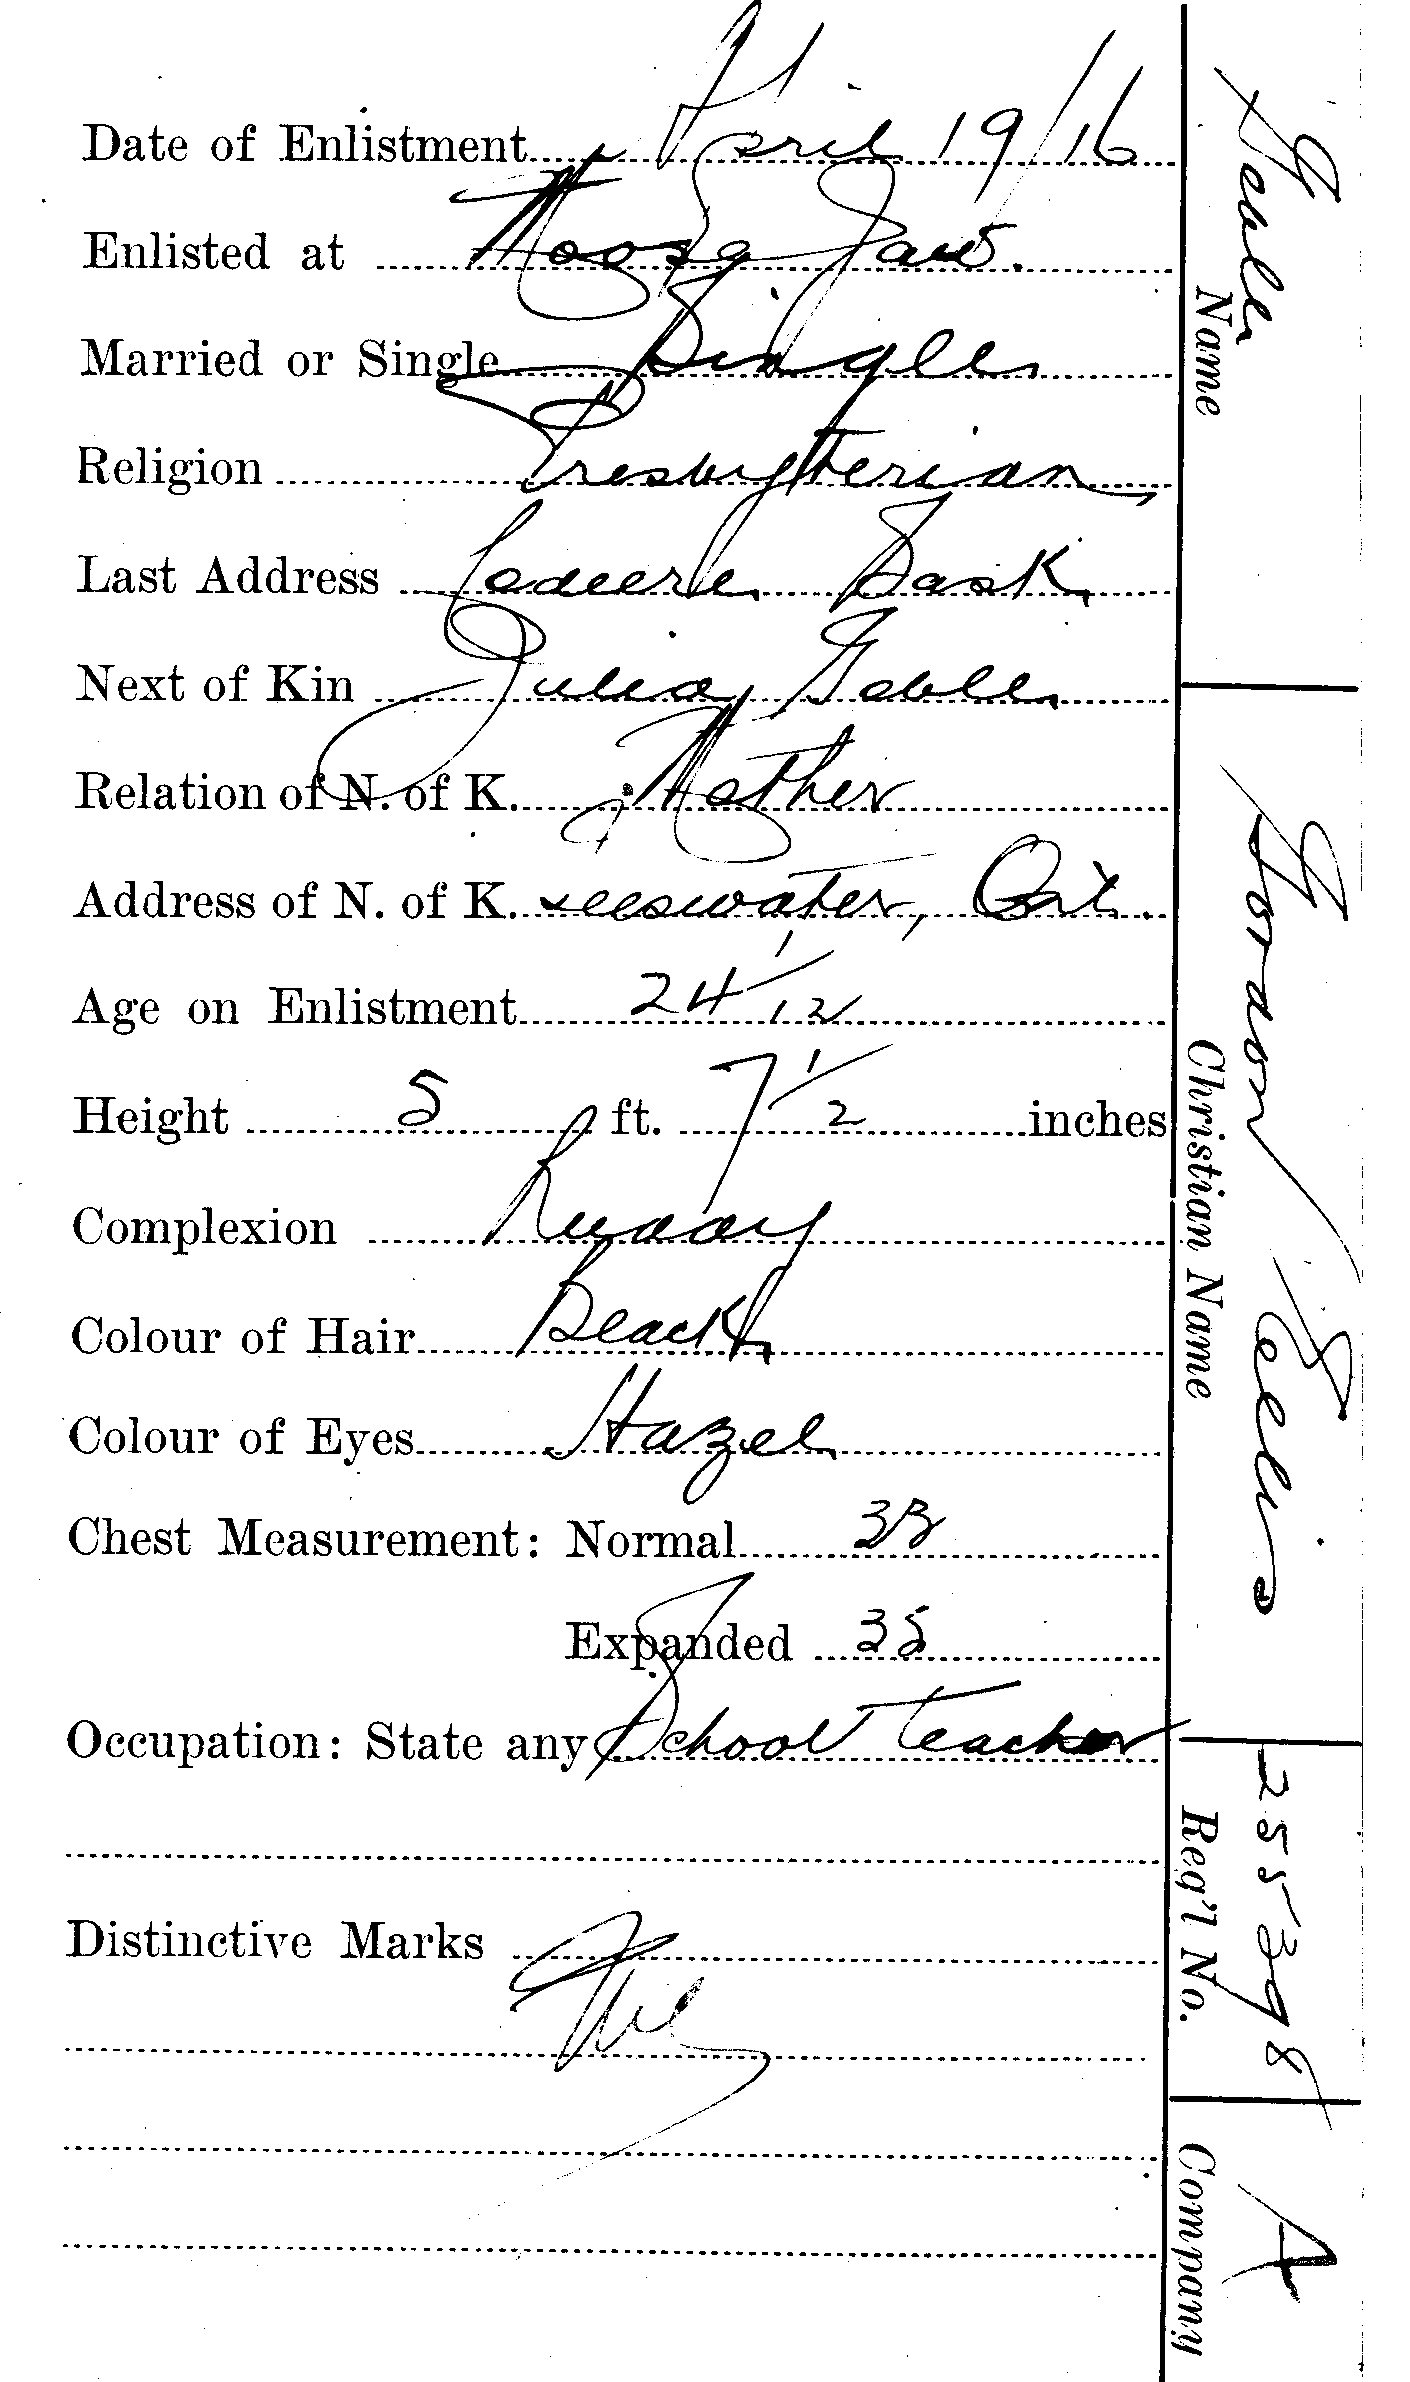 Date of Enlistment April 19/16
Enlisted at Moose Jaw.
Married or Single Single
Religion Presbyterian
Last Address Sask
Next of Kin Julia Goble
Relation of N. of K. Mother
Address of N. of K. Teeswater, Ont.
Age on Enlistment 24 1/12
Height 5 ft. 7 1/2 inches
Complexion Ruddy
Colour of Hair Black
Colour of Eyes Hazel
Chest Measurement: Normal 33
Expanded 35
Occupation: State any School Teacher
Distinctive Marks Nil
Goble
Name
Gordon
Christian Name
255398
Reg'l No.
A
Company